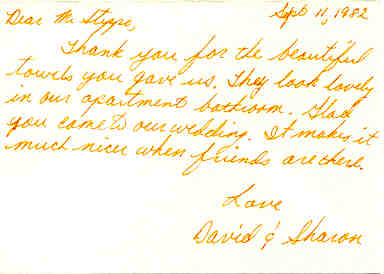 Sept 11, 1982
Dear Mr Stypps,
Thank you for the beautiful
towels you gave us. They look lovely
in our apartment bathroom. Glad
you came to our wedding. It makes it
much nicer when friends are there.
Love
David & Sharon